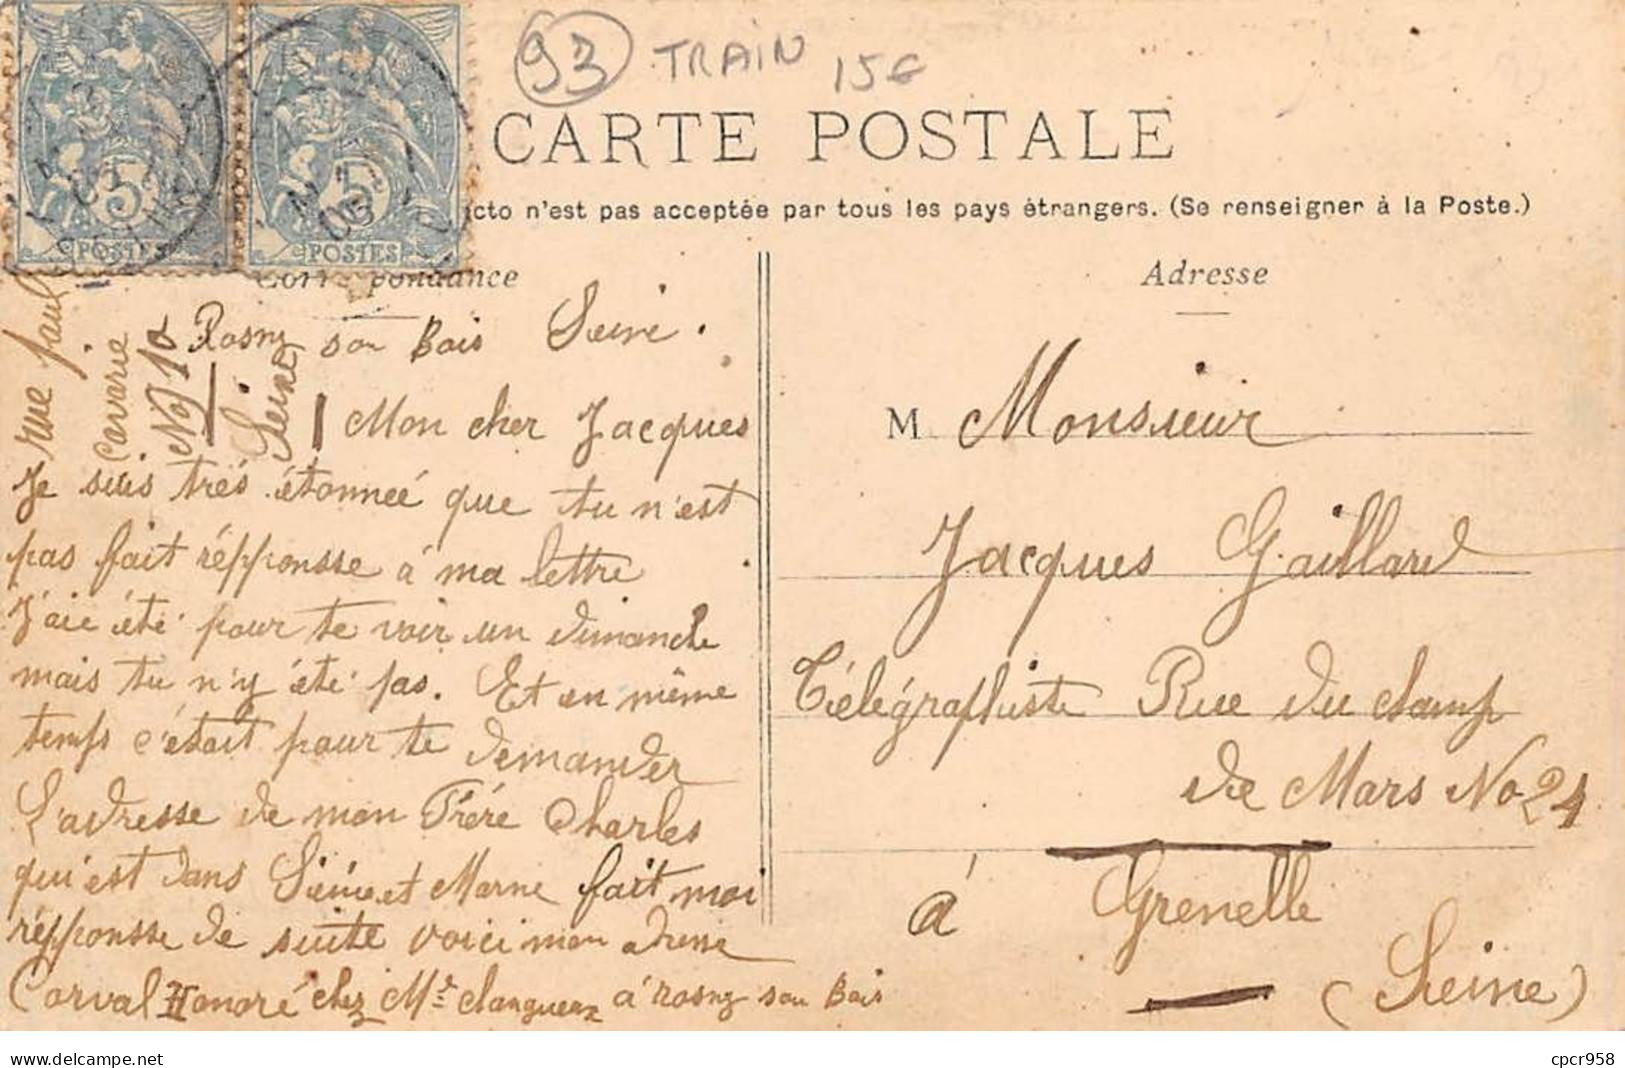 93 TRAIN 15€
CARTE POSTALE
cto n'est pas acceptée par tous les pays étrangers. (Se renseigner à la Poste.)
5 POSTES
5 POSTES
Correspondance
Rosny sou Bois Seine.
Mon cher Jacques
Je suis très étonneé que tu n'est
pas fait répponsse á ma lettre
J'aie été pour te voir un dimanche
mais tu n'y été pas. Et en même
temps c'étoit pour te demander
L'adresse de mon Fréré Charles
qui est dans Seine et Marne fait moi
répponsse de suite voici mon adresse
Corval Honoré chez Mr á rosny sou Bois
rue paul
cavarie
No 10
Seine
Adresse
M Monsieur
Jacques Gaillard
Télégraphiste Rue du champ
de Mars No 24
á Grenelle
(Seine)
cpcr958